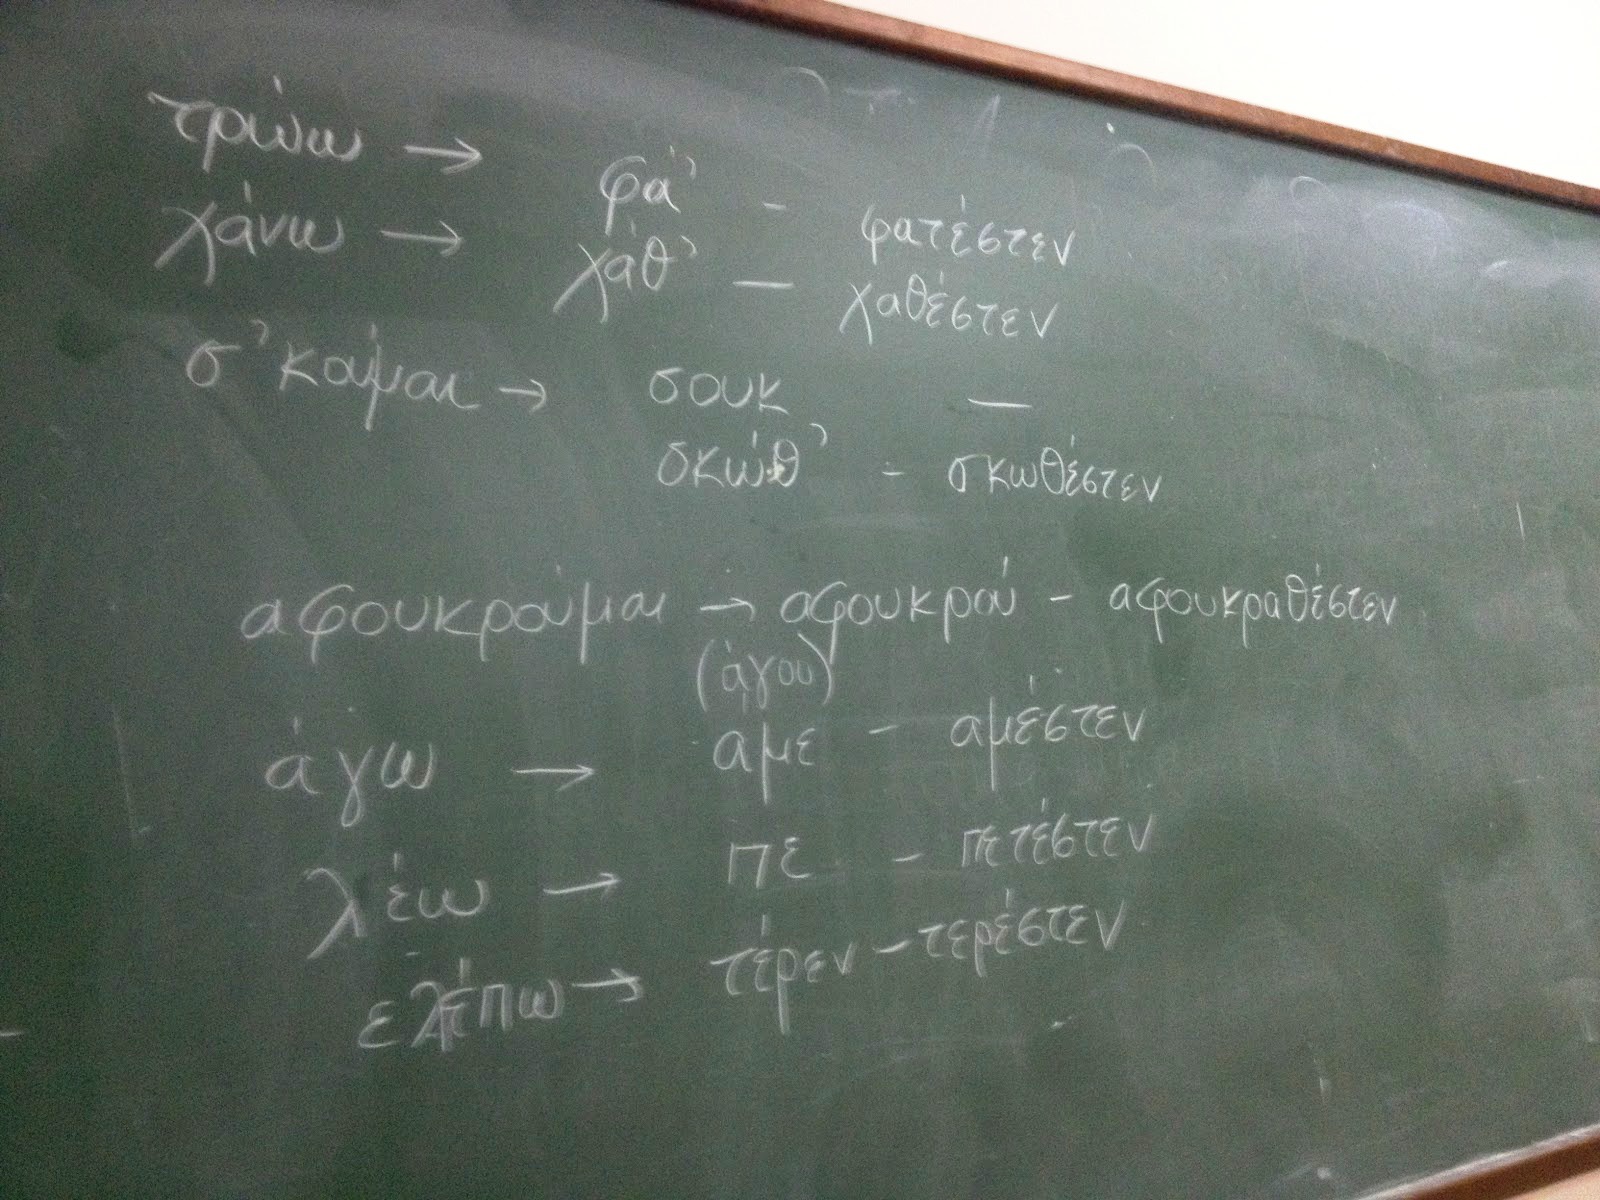 τρώω → φά' - φατέστεν
χάνω → χάθ' — χαθέστεν
σ'κούμαι → σουκ —
σκώθ' - σκωθέστεν
αφουκρούμαι → αφουκρού - αφουκραθέστεν
(άγου)
άγω → αμε - αμέστεν
λέω → πε - πετέστεν
ελέπω → τέρεν - τερέστεν